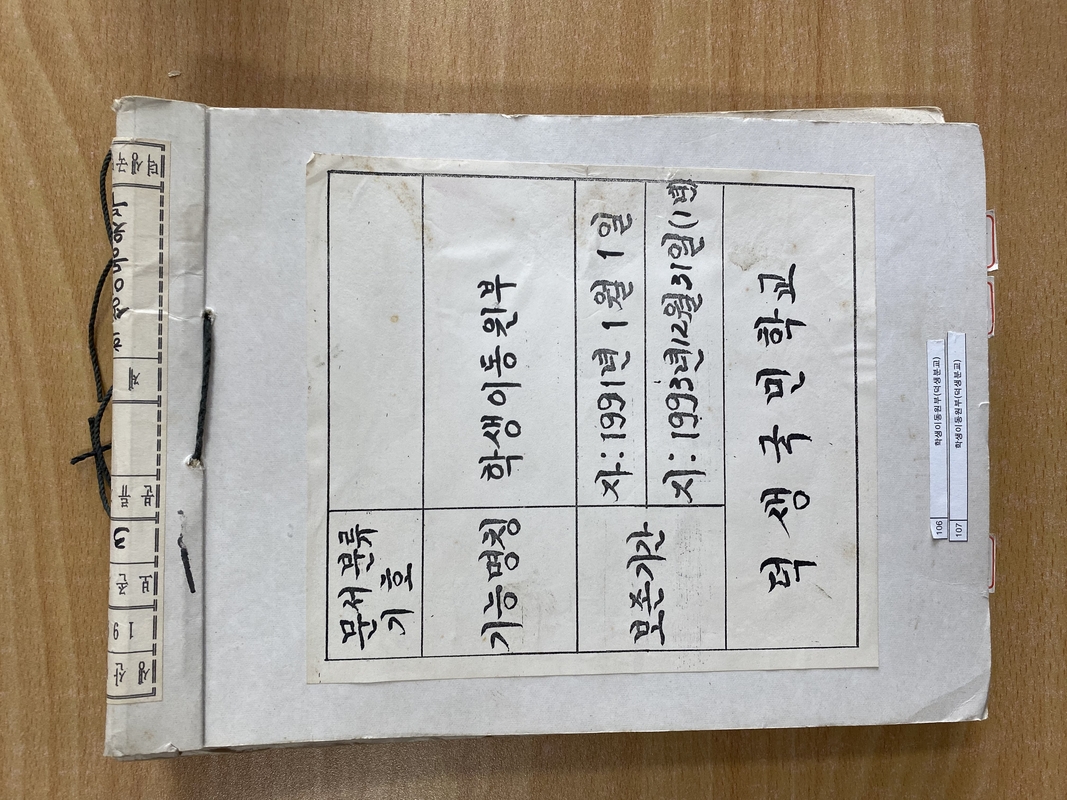 문서분류
기호
기능명칭
학생이동원부
보존기간
자:1991년 1월 1일
지:1993년12월31일(1년)
덕생국민학교
106 학생이동원부(덕생분교)
107 학생이동원부(덕생분교)
덕생국
제
분류
보존
3
19
생산